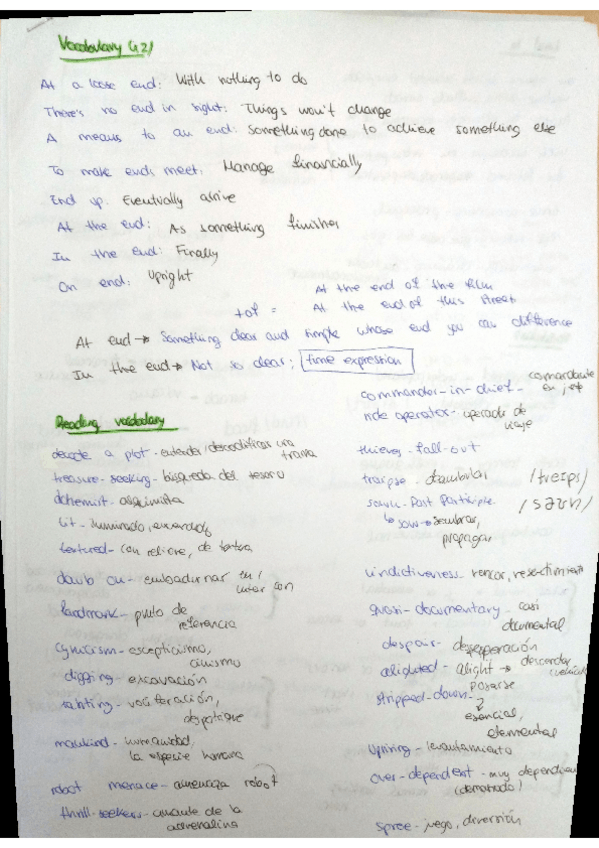 Vocabulary (12)
At a loose end: With nothing to do
There's no end in sight: Things won't change
A means to an end: Something done to achieve something else
To make ends meet: Manage financially
End up: Eventually arrive
At the end: As something finishes
In the end: Finally
On end: Upright
At the end of the film
+of = At the end of this street
At end → Something clear and simple whose end you can difference
In the end → Not so clear; time expression
Reading vocabulary
decode a plot - entender/descodificar una trama
treasure-seeking - búsqueda del tesoro
alchemist - alquimista
lit - iluminado, encendido
textured - con relieve, de textura
daub on - embadurnar en/
con
landmark - punto de
referencia
cynicism - escepticismo,
cinismo
digging - excavación
ranting - vociferación,
despotique
mankind - humanidad,
la especie humana
robot menace - amenaza robot
thrill-seekers - amante de la
adrenalina
commander-in-chief - comandante
en jefe
ride operator - operador de
viaje
thieves - fall-out
traipse - deambular /treɪps/
sown - Past Participle /səʊn/
↳ sow → sembrar,
propagar
vindictiveness - rencor, resentimiento
quasi-documentary - casi
documental
despair - desesperación
alighted - alight → descender
posarse
stripped-down
↳ esencial,
elemental
uprising - levantamiento
over-dependent - muy dependiente
(demasiado)
spree - juego, diversión